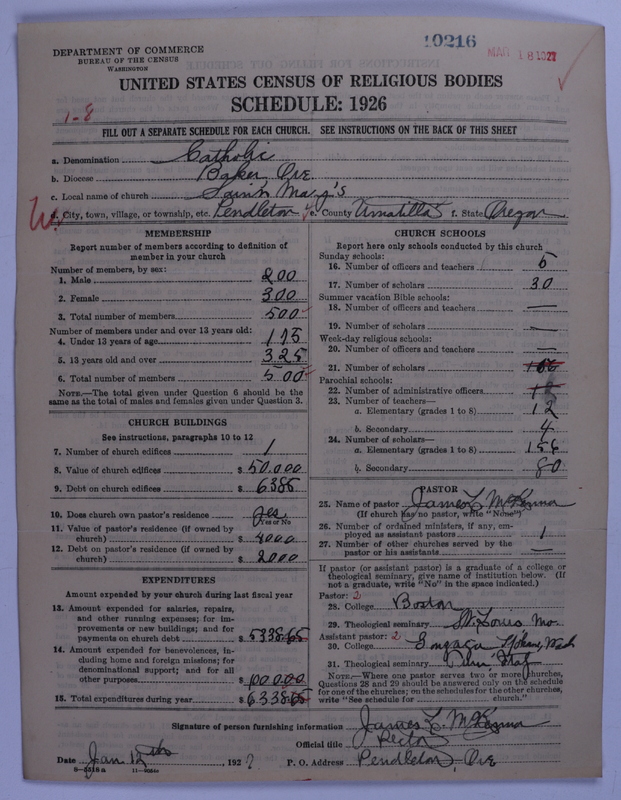 10216
MAR 18 1927
DEPARTMENT OF COMMERCE
BUREAU OF THE CENSUS
WASHINGTON
UNITED STATES CENSUS OF RELIGIOUS BODIES
SCHEDULE: 1926
1-8
FILL OUT A SEPARATE SCHEDULE FOR EACH CHURCH. SEE INSTRUCTIONS ON THE BACK OF THIS SHEET
a. Denomination Catholic
b. Diocese Baker, Ore
c. Local name of church Saint Mary's
d. City, town, village, or township, etc. Pendleton e. County Umatilla f. State Oregon
MEMBERSHIP
Report number of members according to definition of
member in your church
Number of members, by sex:
1. Male 200
2. Female 300
3. Total number of members 500
Number of members under and over 13 years old:
4. Under 13 years of age 175
5. 13 years old and over 325
6. Total number of members 500
NOTE.—The total given under Question 6 should be
same as the total of males and females given under Question 3.
CHURCH BUILDINGS
See instructions, paragraphs 10 to 12
7. Number of church edifices 1
8. Value of church edifices $ 50.000
9. Debt on church edifices $ 6385
10. Does church own pastor's residence yes
Yes or No
11. Value of pastor's residence (if owned by
church) $ 4000
12. Debt on pastor's residence (if owned by
church) $ 2000
EXPENDITURES
Amount expended by your church during last fiscal year
13. Amount expended for salaries, repairs,
and other running expenses; for im-
provements or new buildings; and for
payments on church debt $ 5338.65
14. Amount expended for benevolences, in-
cluding home and foreign missions; for
denominational support; and for all
other purposes $ 100.00
15. Total expenditures during year $ 6338.65
CHURCH SCHOOLS
Report here only schools conducted by this church
Sunday schools:
16. Number of officers and teachers 5
17. Number of scholars 30
Summer vacation Bible schools:
18. Number of officers and teachers —
19. Number of scholars —
Week-day religious schools:
20. Number of officers and teachers —
21. Number of scholars 156
Parochial schools:
22. Number of administrative officers
23. Number of teachers—
a. Elementary (grades 1 to 8) 12
b. Secondary 4
24. Number of scholars—
a. Elementary (grades 1 to 8) 156
b. Secondary 80
PASTOR
25. Name of pastor James L. McKenna
(If church has no pastor, write "None")
26. Number of ordained ministers, if any, em-
ployed as assistant pastors 1
27. Number of other churches served by the
pastor or his assistants —
If pastor (or assistant pastor) is a graduate of a college or
theological seminary, give name of institution below. (If
not a graduate, write "No" in the space indicated.)
Pastor: 2
28. College Boston
29. Theological seminary St. Louis Mo.
Assistant pastor: 2
30. College Gonzaga Wash
31. Theological seminary
NOTE.—Where one pastor serves two or more churches,
Questions 28 and 29 should be answered only on the schedule
for one of the churches; on the schedules for the other churches,
write "See schedule for church."
Signature of person furnishing information James L. McKenna
Official title Rector
Date Jan 12th, 192 7 P. O. Address Pendleton Ore
8-5518a 11-9064a